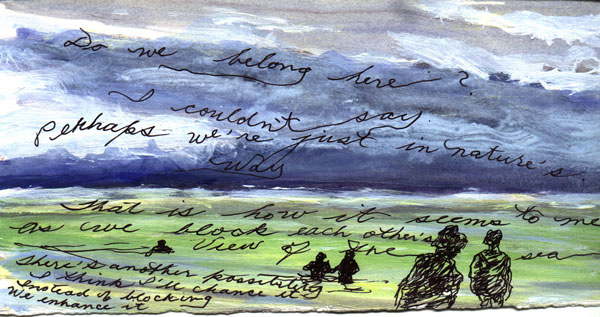 Do we belong here?
I couldn't say.
Perhaps we're just in nature's
way
That is how it seems to me
as we block each other's
view of the sea
there's another possibility
I think I'll chance it
Instead of blocking
We enhance it